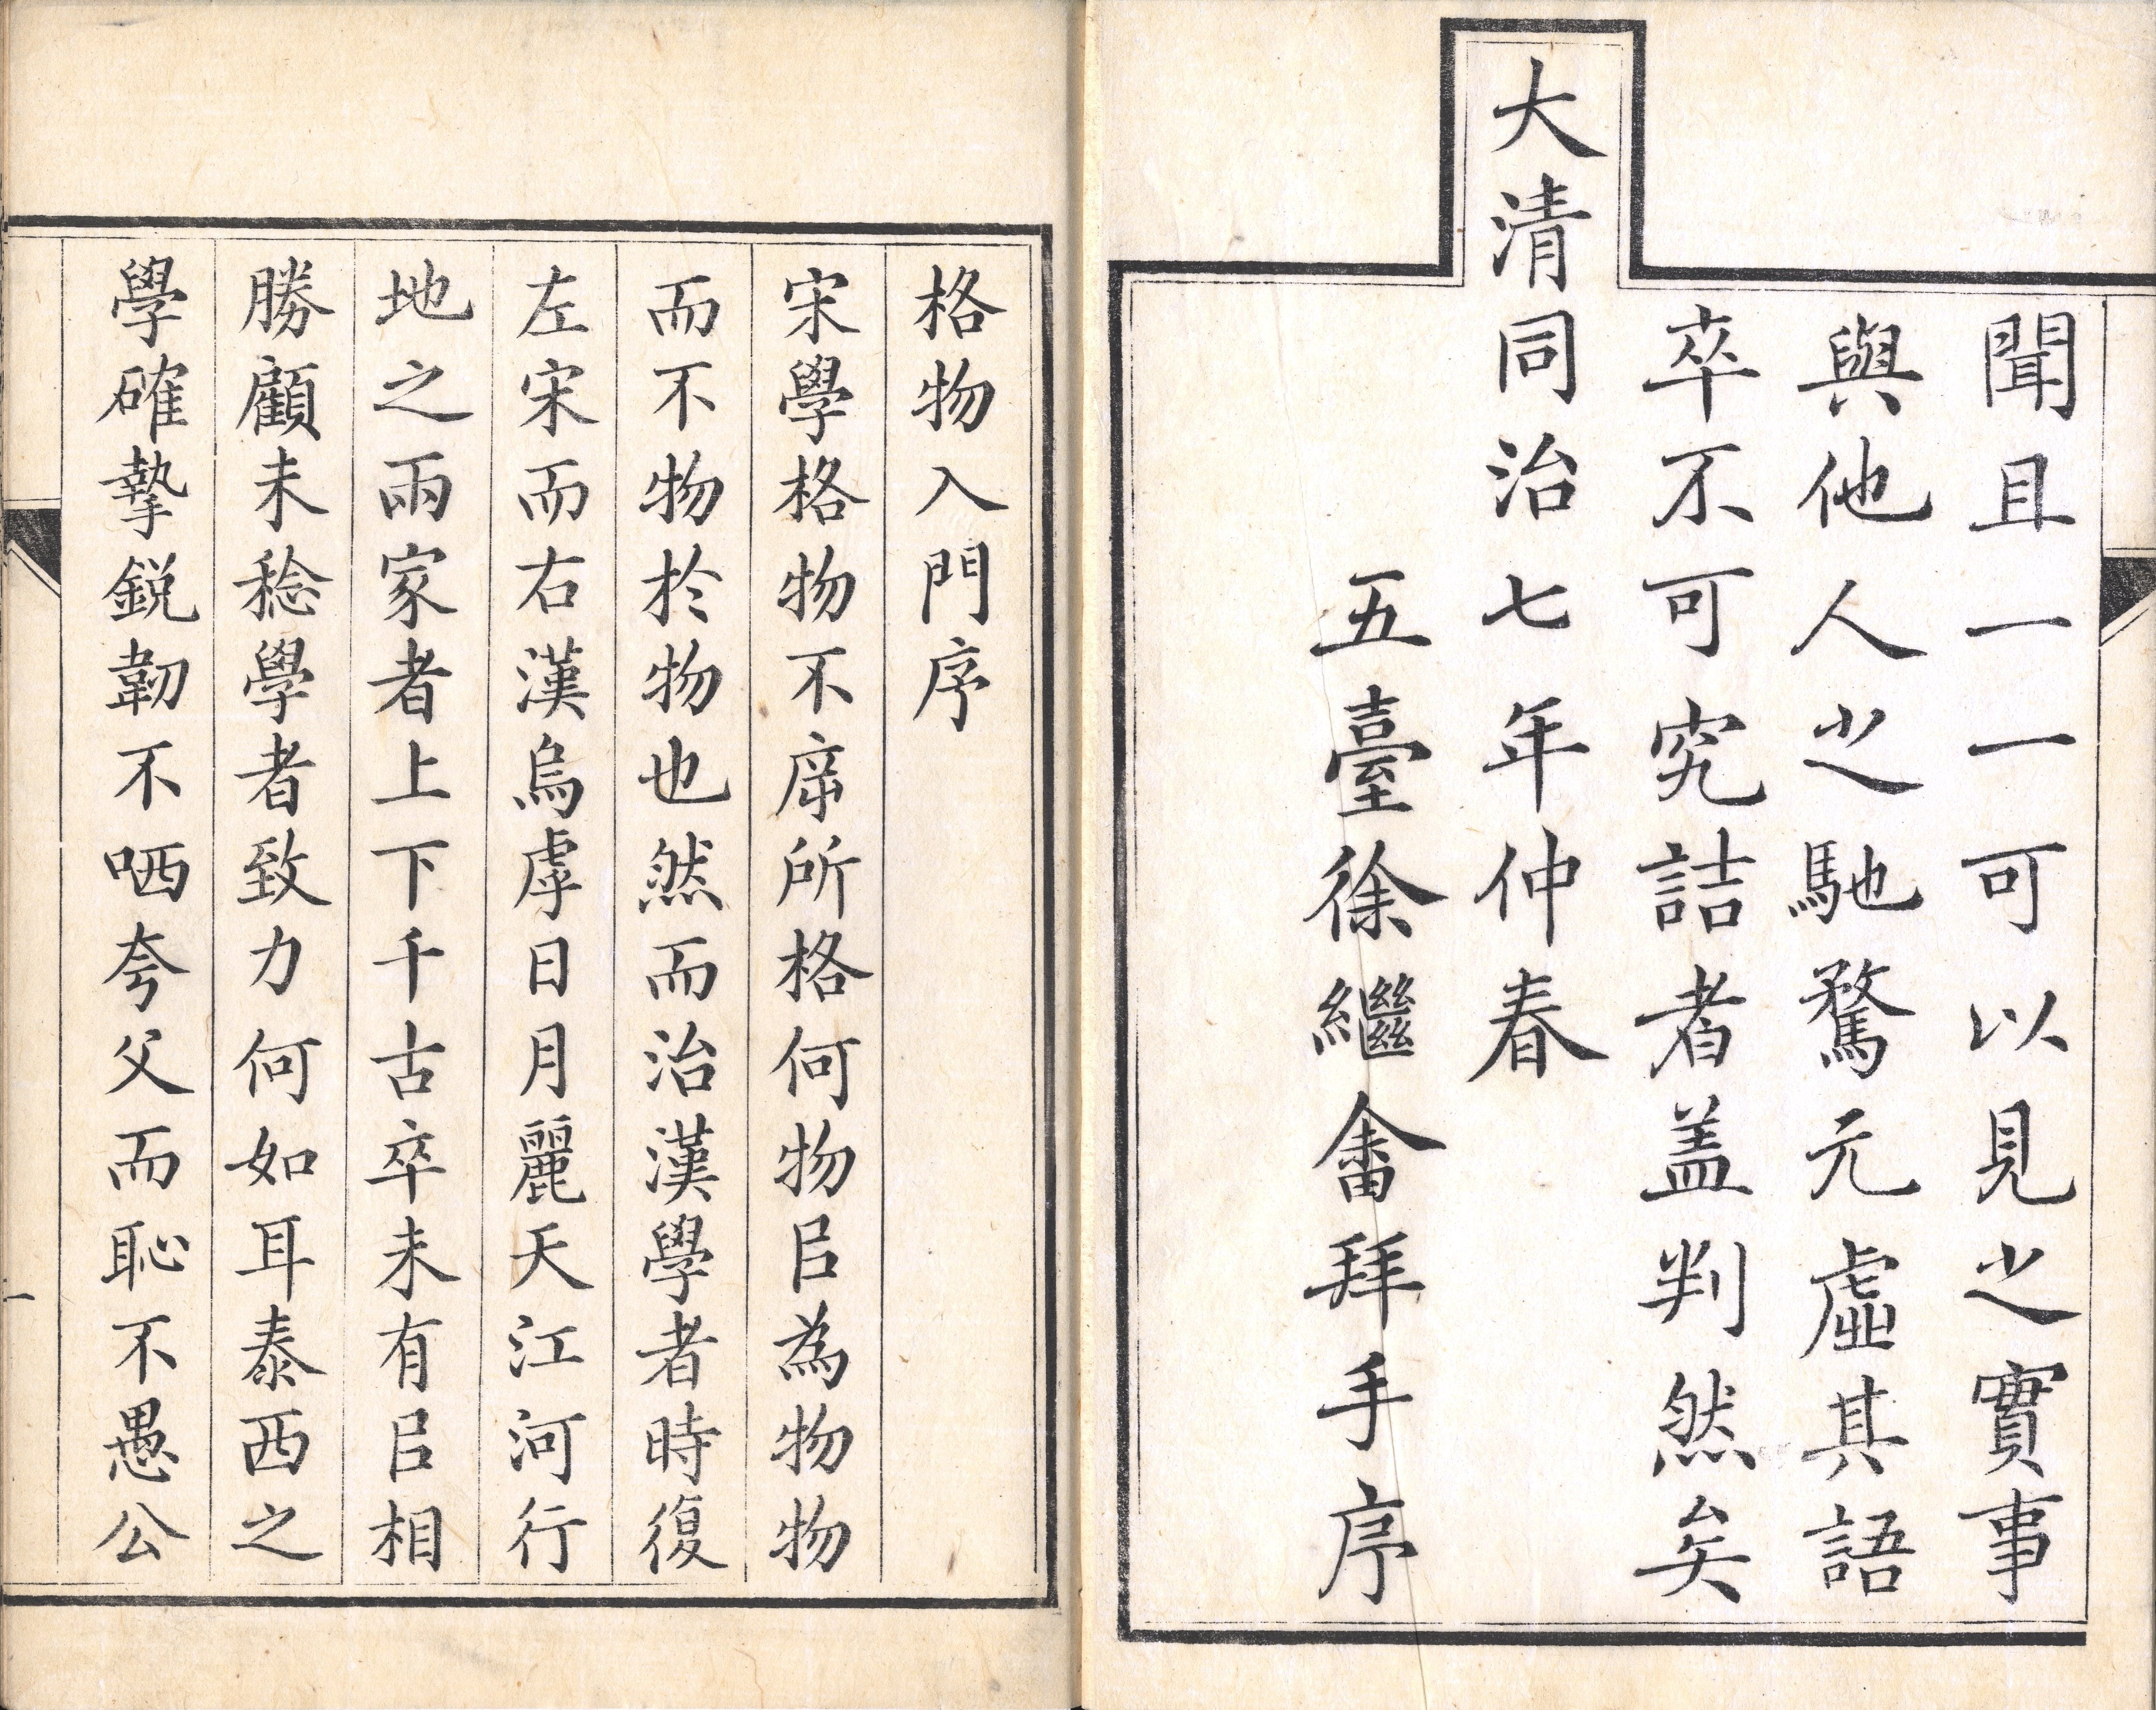 聞且一一可以見之實事
與他人之馳騖元虛其語
卒不可究詰者盖判然矣
大清同治七年仲春
五臺徐繼畬拜手序
格物入門序
宋學格物不㡿所格何物㠯為物物
而不物於物也然而治漢學者時復
左宋而右漢烏虖日月麗天江河行
地之兩家者上下千古卒未有㠯相
勝顧未稔學者致力何如耳泰西之
學確摯銳韌不哂夸父而恥不愚公
一